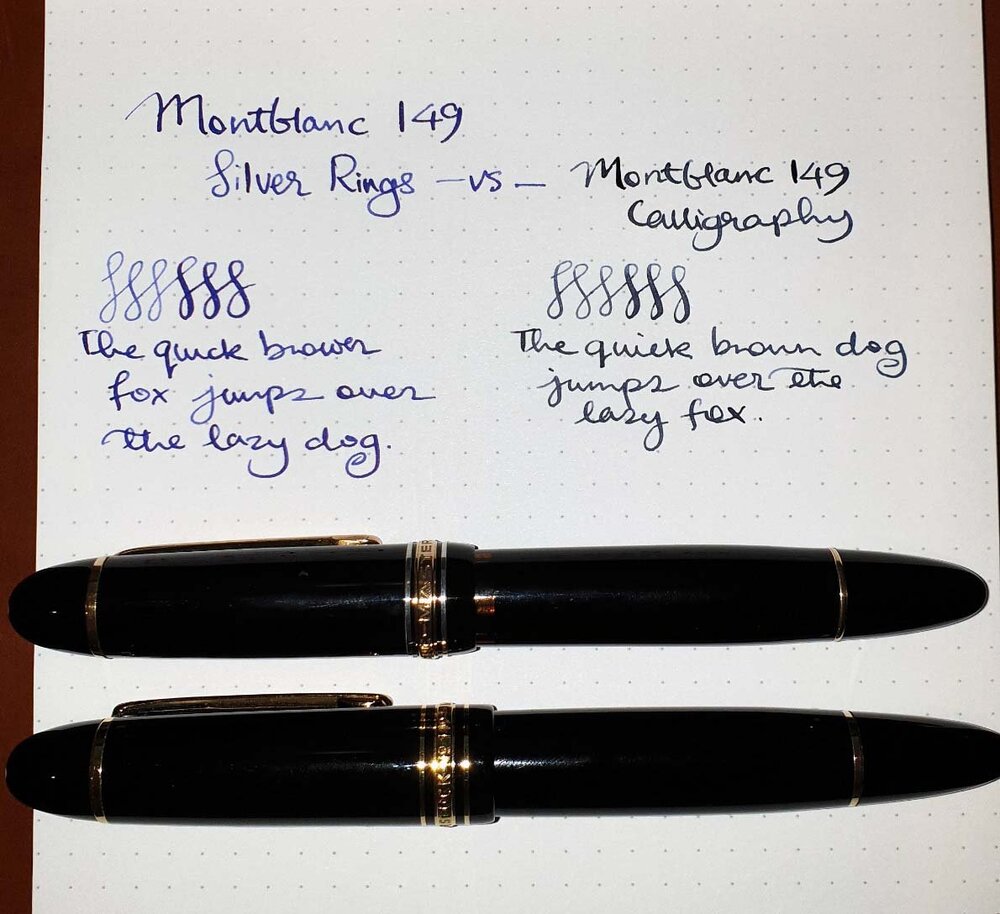 Montblanc 149
Silver Rings — vs — Montblanc 149
Calligraphy
The quick brower
fox jumps over
the lazy dog.
The quick brown dog
jumps over the
lazy fox..